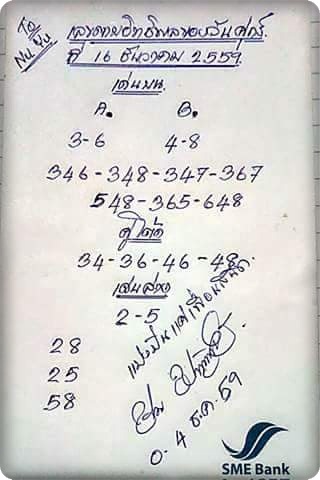 To
Nu นุ้ย
เลขตามอิทธิพลของวันศุกร์.
ที่ 16 ธันวาคม 2559
เด่นบน.
A. B.
3-6 4-8
346-348-347-367
548-365-648
คู่โต๊ด
34-36-46-48
เด่นล่าง
2-5
28
25
58
0. 4 ธ.ค. 59
SME Bank